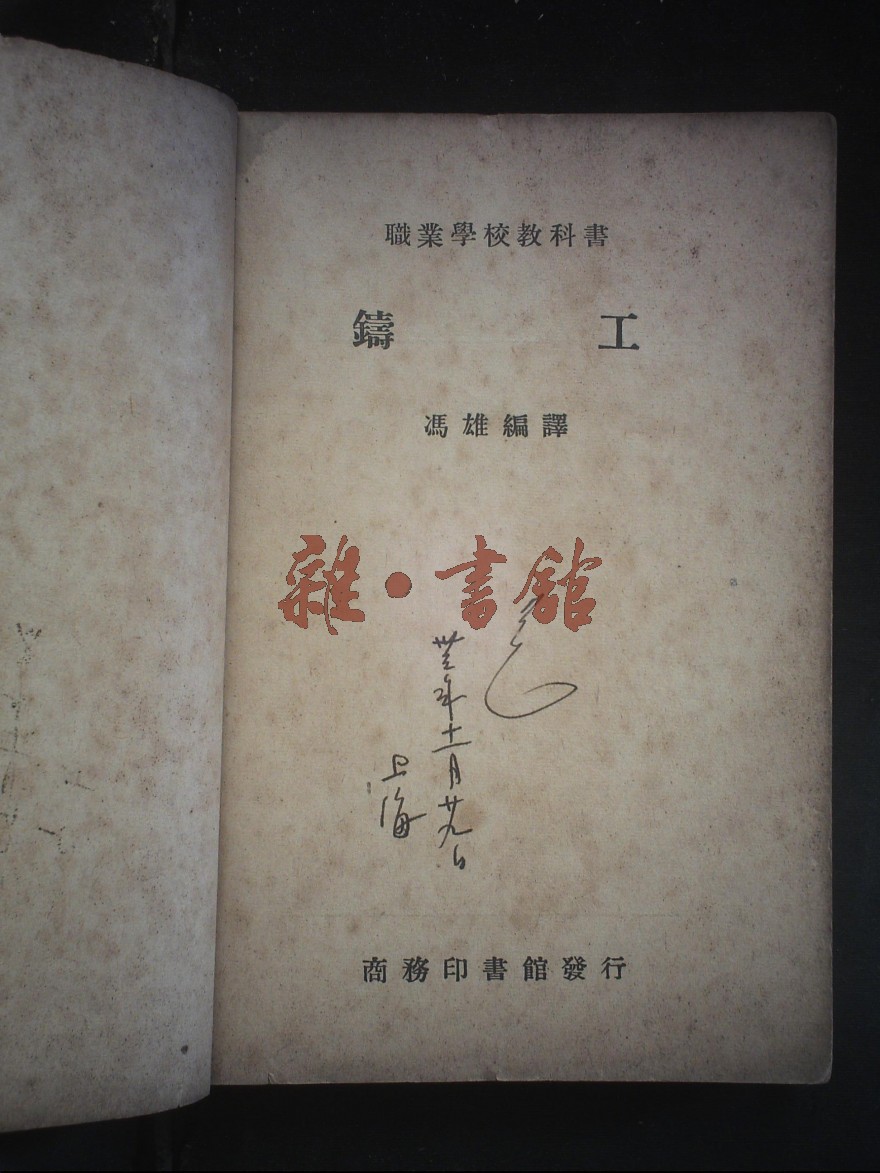 職業學校教科書
鑄 工
馮雄編譯
雜·書館
卅三年十一月廿九日
上海
商務印書館發行